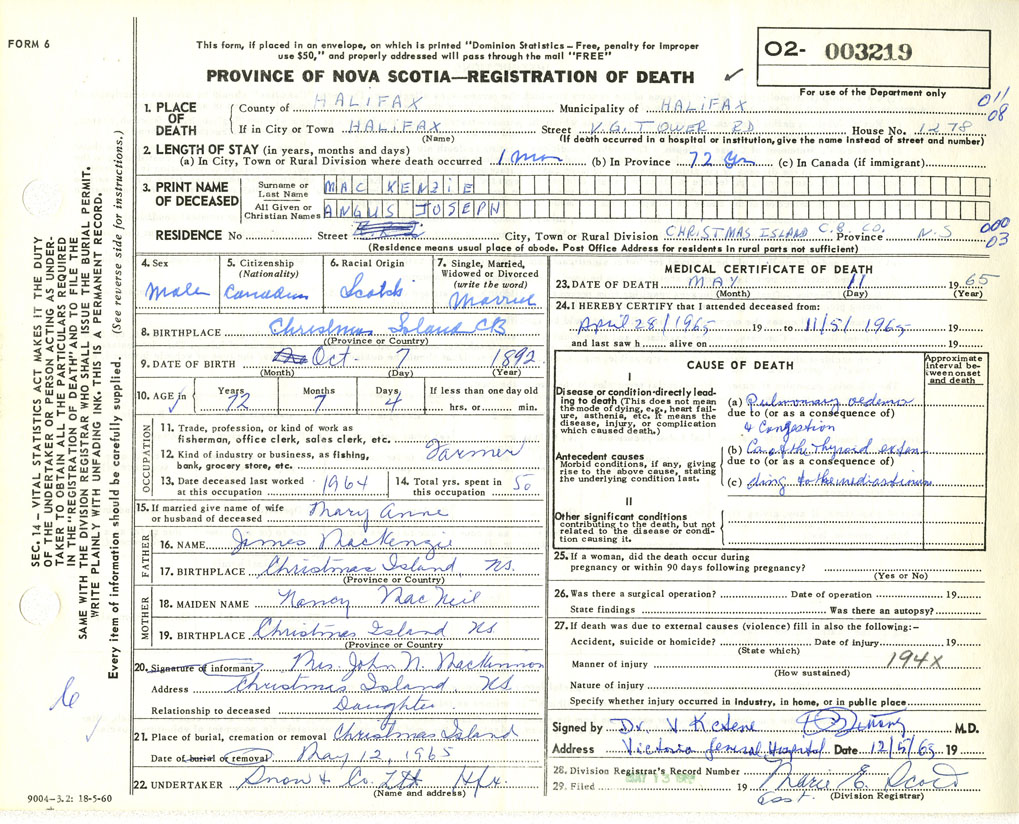 FORM 6
This form, if placed in an envelope, on which is printed "Dominion Statistics – Free, penalty for improper
use $50," and properly addressed will pass through the mail "FREE"
O2- 003219
PROVINCE OF NOVA SCOTIA—REGISTRATION OF DEATH ✓
For use of the Department only
011
08
1. PLACE OF DEATH
County of HALIFAX Municipality of HALIFAX
If in City or Town HALIFAX Street V.G. TOWER RD House No. 1278
(Name) (If death occurred in a hospital or institution, give the name instead of street and number)
2. LENGTH OF STAY (in years, months and days)
(a) In City, Town or Rural Division where death occurred 1 Mon (b) In Province 72 Yrs (c) In Canada (if immigrant)
3. PRINT NAME OF DECEASED
Surname or Last Name MAC KENZIE
All Given or Christian Names ANGUS JOSEPH
RESIDENCE No Street City, Town or Rural Division CHRISTMAS ISLAND C.B. CO. Province N.S
000
03
(Residence means usual place of abode. Post Office Address for residents in rural parts not sufficient)
4. Sex
Male
5. Citizenship
(Nationality)
Canadian
6. Racial Origin
Scotch
7. Single, Married,
Widowed or Divorced
(write the word)
Married
8. BIRTHPLACE Christmas Island CB
(Province or Country)
9. DATE OF BIRTH Oct 7 1892
(Month) (Day) (Year)
10. AGE in Years Months Days If less than one day old
✓ 72 7 4 hrs. or min.
OCCUPATION
11. Trade, profession, or kind of work as
fisherman, office clerk, sales clerk, etc.
12. Kind of industry or business, as fishing, Farmer
bank, grocery store, etc.
13. Date deceased last worked 1964 14. Total yrs. spent in 50
at this occupation this occupation
15. If married give name of wife Mary Anne
or husband of deceased
FATHER
16. NAME James MacKenzie
17. BIRTHPLACE Christmas Island, NS.
(Province or Country)
MOTHER
18. MAIDEN NAME Nancy MacNeil
19. BIRTHPLACE Christmas Island NS
(Province or Country)
20. Signature of informant Mrs. John N. MacKinnon
Address Christmas Island. NS
Relationship to deceased Daughter
21. Place of burial, cremation or removal Christmas Island
Date of burial or removal May 12, 1965
22. UNDERTAKER Snow & Co. Ltd Hfx.
(Name and address)
MEDICAL CERTIFICATE OF DEATH
23. DATE OF DEATH MAY 11 1965
(Month) (Day) (Year)
24. I HEREBY CERTIFY that I attended deceased from:
April 28/1965 19 to 11/5/1965 19
and last saw h alive on 19
CAUSE OF DEATH
Approximate interval between onset and death
I
Disease or condition directly leading to death (This does not mean the mode of dying, e.g., heart failure, asthenia, etc. It means the disease, injury, or complication which caused death.)
(a) Pulmonary oedema
due to (or as a consequence of)
& Congestion
Antecedent causes
Morbid conditions, if any, giving rise to the above cause, stating the underlying condition last.
(b) Ca. of the thyroid exten
due to (or as a consequence of)
(c) ding to the mediastinum
II
Other significant conditions
contributing to the death, but not related to the disease or condition causing it.
25. If a woman, did the death occur during
pregnancy or within 90 days following pregnancy?
(Yes or No)
26. Was there a surgical operation? Date of operation 19
State findings Was there an autopsy?
27. If death was due to external causes (violence) fill in also the following:–
Accident, suicide or homicide? Date of injury 19
(State which)
Manner of injury 194X
(How sustained)
Nature of injury
Specify whether injury occurred in industry, in home, or in public place
Signed by Dr. V. M.D.
Address Victoria General Hospital Date 12/5/65 19
28. Division Registrar's Record Number
29. Filed 19 Marie E.
Asst. (Division Registrar)
SEC. 14 – VITAL STATISTICS ACT MAKES IT THE DUTY
OF THE UNDERTAKER OR PERSON ACTING AS UNDER-
TAKER TO OBTAIN ALL THE PARTICULARS REQUIRED
IN THE "REGISTRATION OF DEATH" AND TO FILE THE
SAME WITH THE DIVISION REGISTRAR WHO SHALL ISSUE THE BURIAL PERMIT.
WRITE PLAINLY WITH UNFADING INK. THIS IS A PERMANENT RECORD.
Every item of information should be carefully supplied. (See reverse side for instructions.)
9004–3.2: 18-5-60